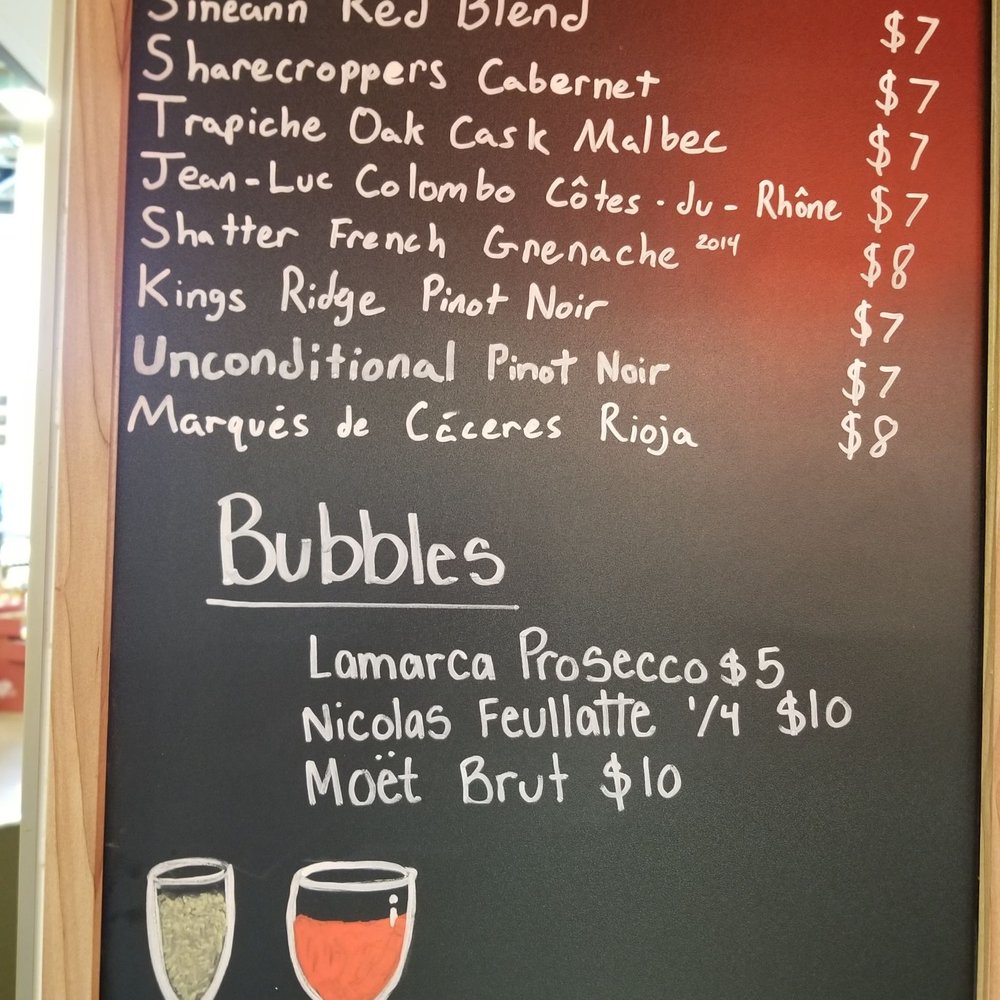 Sineann Red Blend $7
Sharecroppers Cabernet $7
Trapiche Oak Cask Malbec $7
Jean-Luc Colombo Côtes-du-Rhône $7
Shatter French Grenache 2014 $8
Kings Ridge Pinot Noir $7
Unconditional Pinot Noir $7
Marqués de Cáceres Rioja $8
Bubbles
Lamarca Prosecco $5
Nicolas Feullatte 1/4 $10
Moët Brut $10